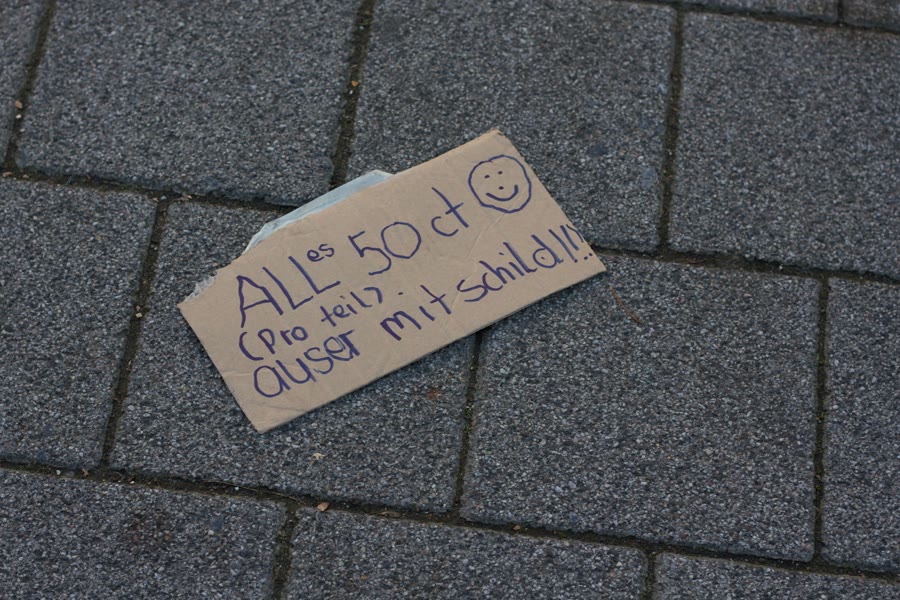 ALLes 50 ct
(Pro teil)
auser mit schild!!!